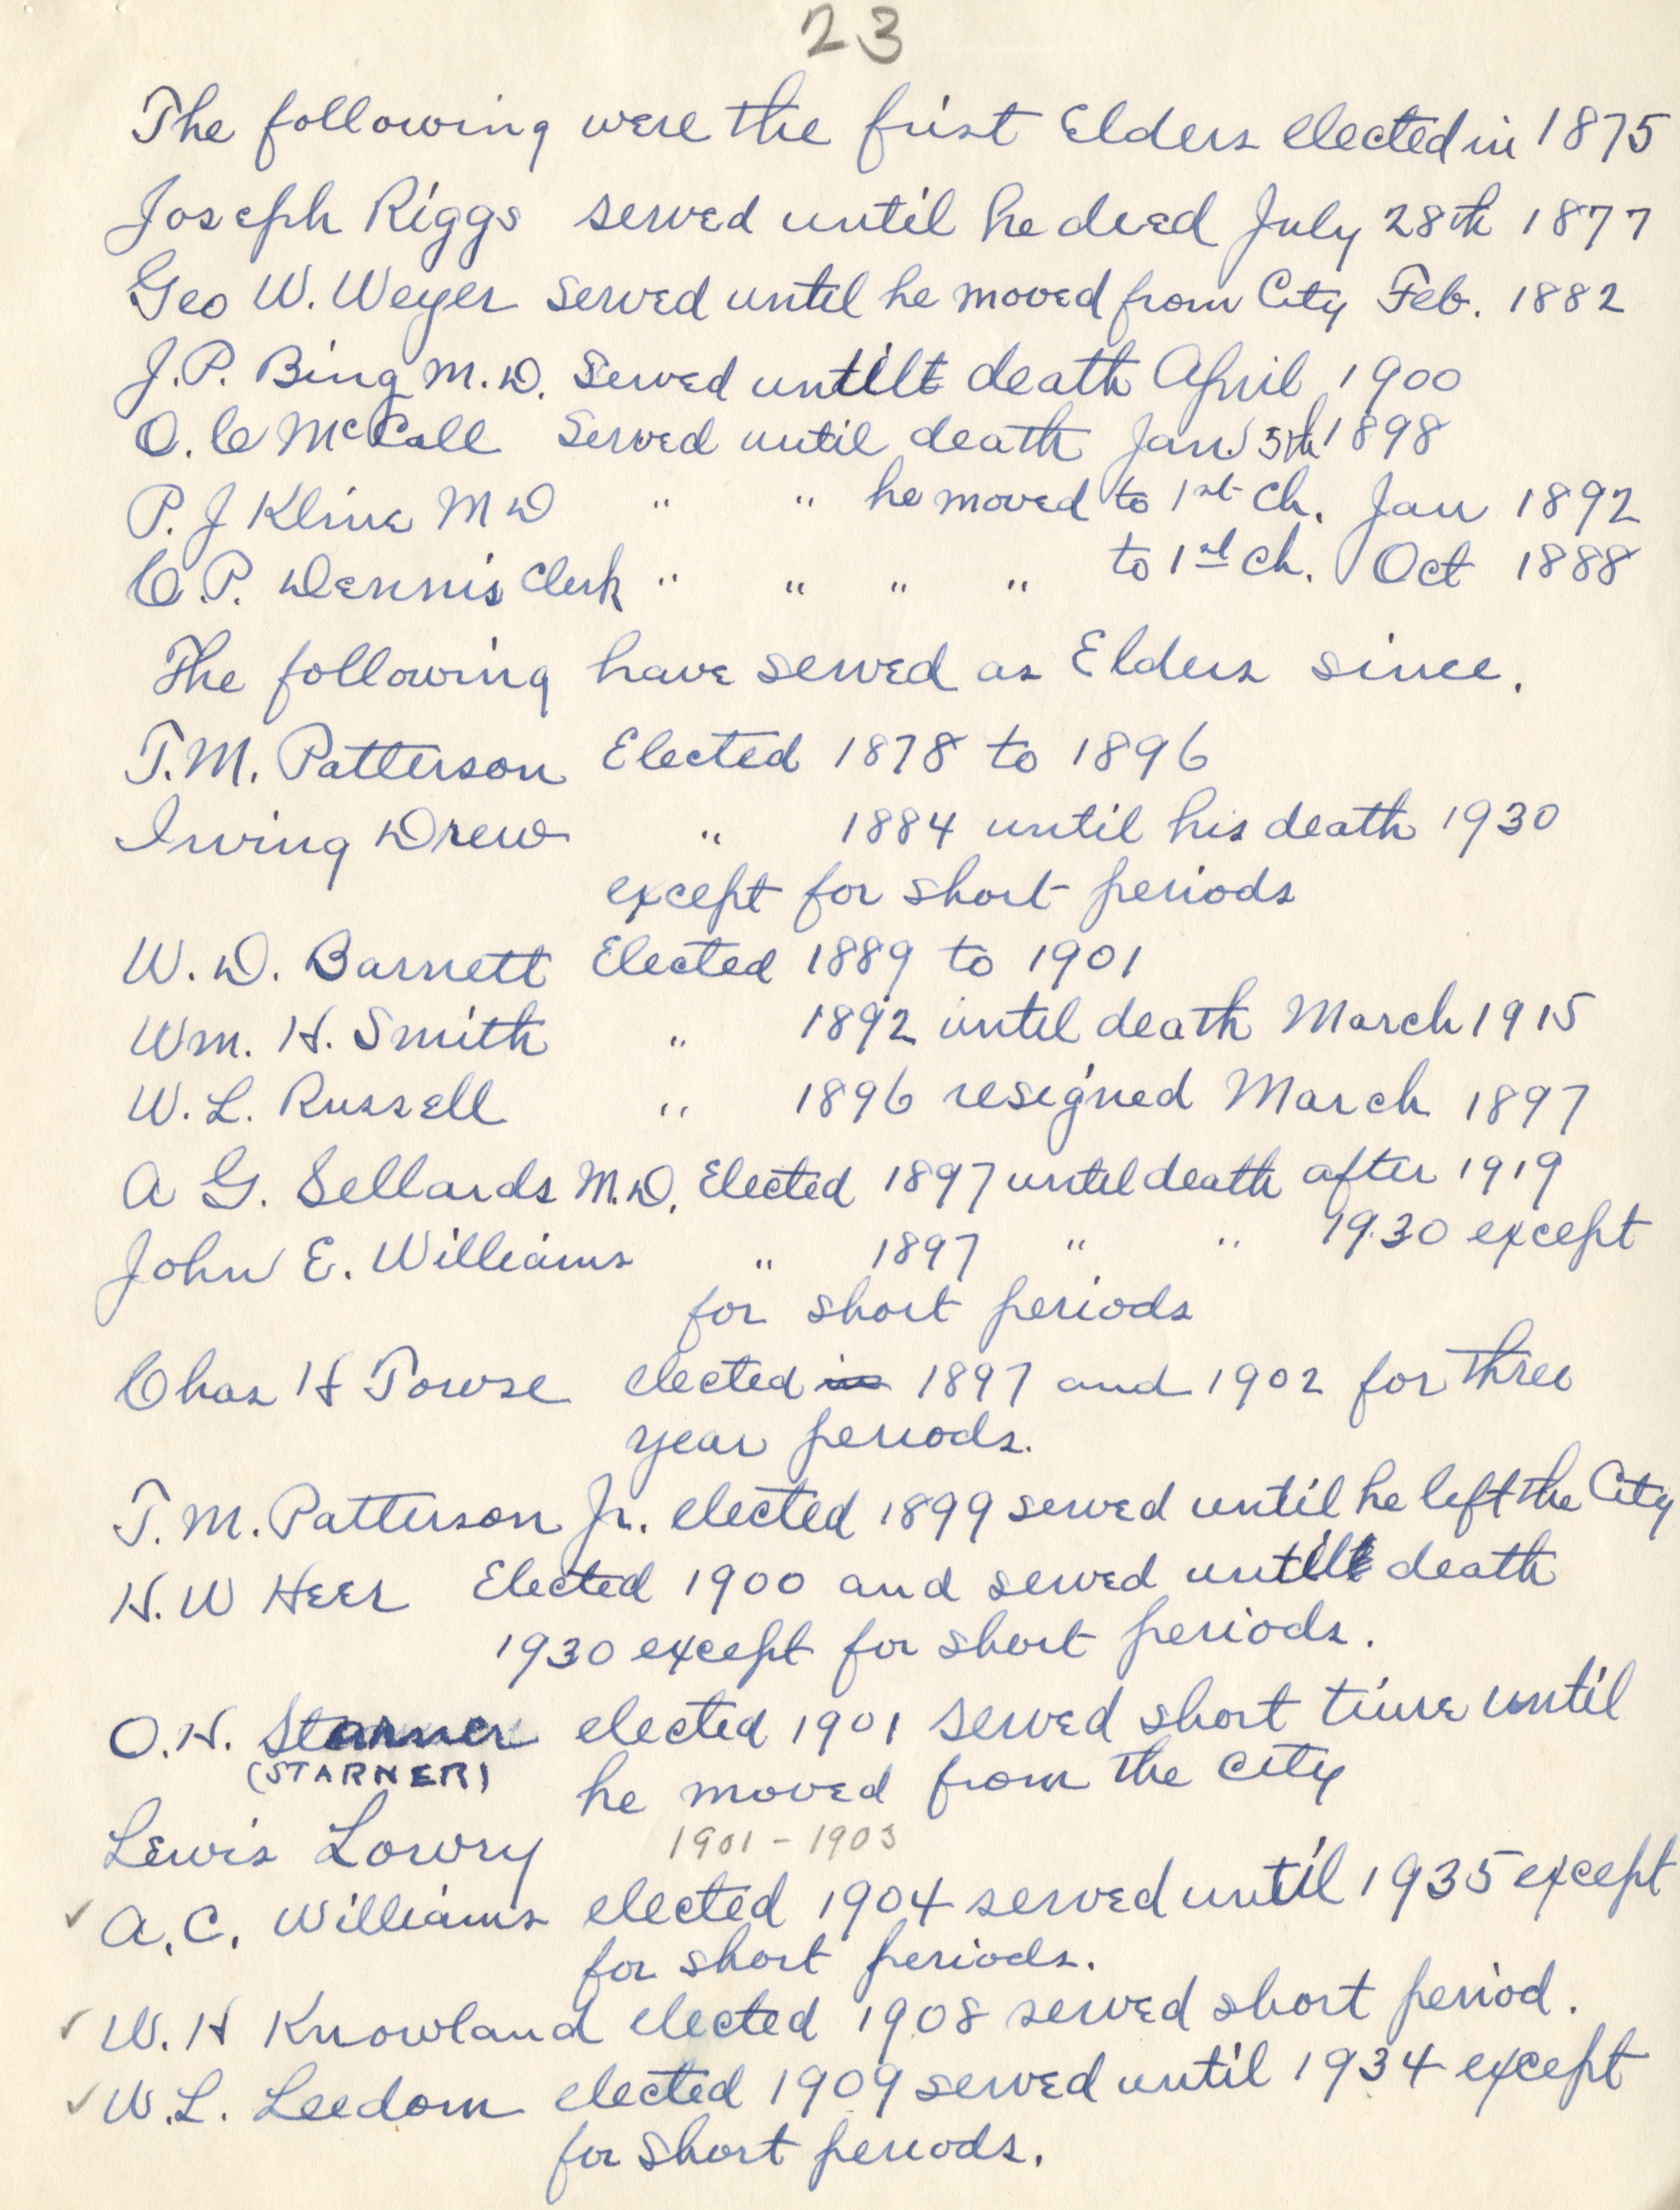 23
The following were the first Elders elected in 1875
Joseph Riggs served until he died July 28th 1877
Geo W. Weyer served until he moved from City Feb. 1882
J.P. Bing M.D. Served until death April 1900
O. C McCall Served until death Jan. 5th 1898
P. J Kline M D " " he moved to 1st Ch. Jan 1892
C. P. Dennis Clerk " " " " to 1st Ch. Oct 1888
The following have served as Elders since.
T.M. Patterson Elected 1878 to 1896
Irving Drew " 1884 until his death 1930
except for short periods
W. D. Barnett Elected 1889 to 1901
Wm. H. Smith " 1892 until death March 1915
W. L. Russell " 1896 resigned March 1897
A G. Sellards M.D. Elected 1897 until death after 1919
John E. Williams " 1897 " " 1930 except
for short periods
Chas H Towse elected in 1897 and 1902 for three
year periods.
T. M. Patterson Jr. elected 1899 served until he left the City
H. W Heer Elected 1900 and served until death
1930 except for short periods.
O. H. Starner elected 1901 served short time until
(STARNER) he moved from the City
Lewis Lowry 1901 - 1903
✓ A. C. Williams elected 1904 served until 1935 except
for short periods.
✓ W. H Knowland elected 1908 served short period.
✓ W. L. Leedom elected 1909 served until 1934 except
for short periods.